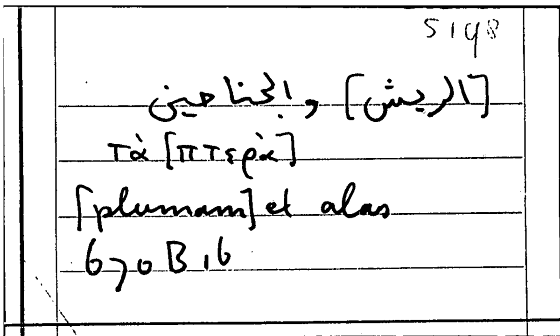 5198
[الريش] والجناحين
τὰ [πτερὰ]
[plumam] et alas
670 B 16